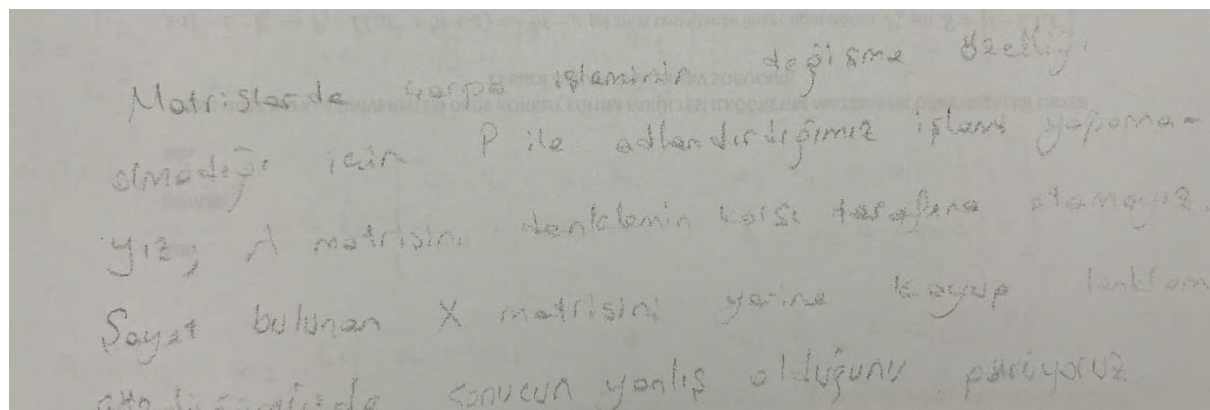 Matrislerde çarpa işleminin değişme özelliği
olmadığı için P ile adlandırdığımız işlemi yapama-
yız, A matrisini denklemin karşı tarafına atamayız.
Şayet bulunan X matrisini yerine koyup denklem
sonucun yanlış olduğunu görüyoruz